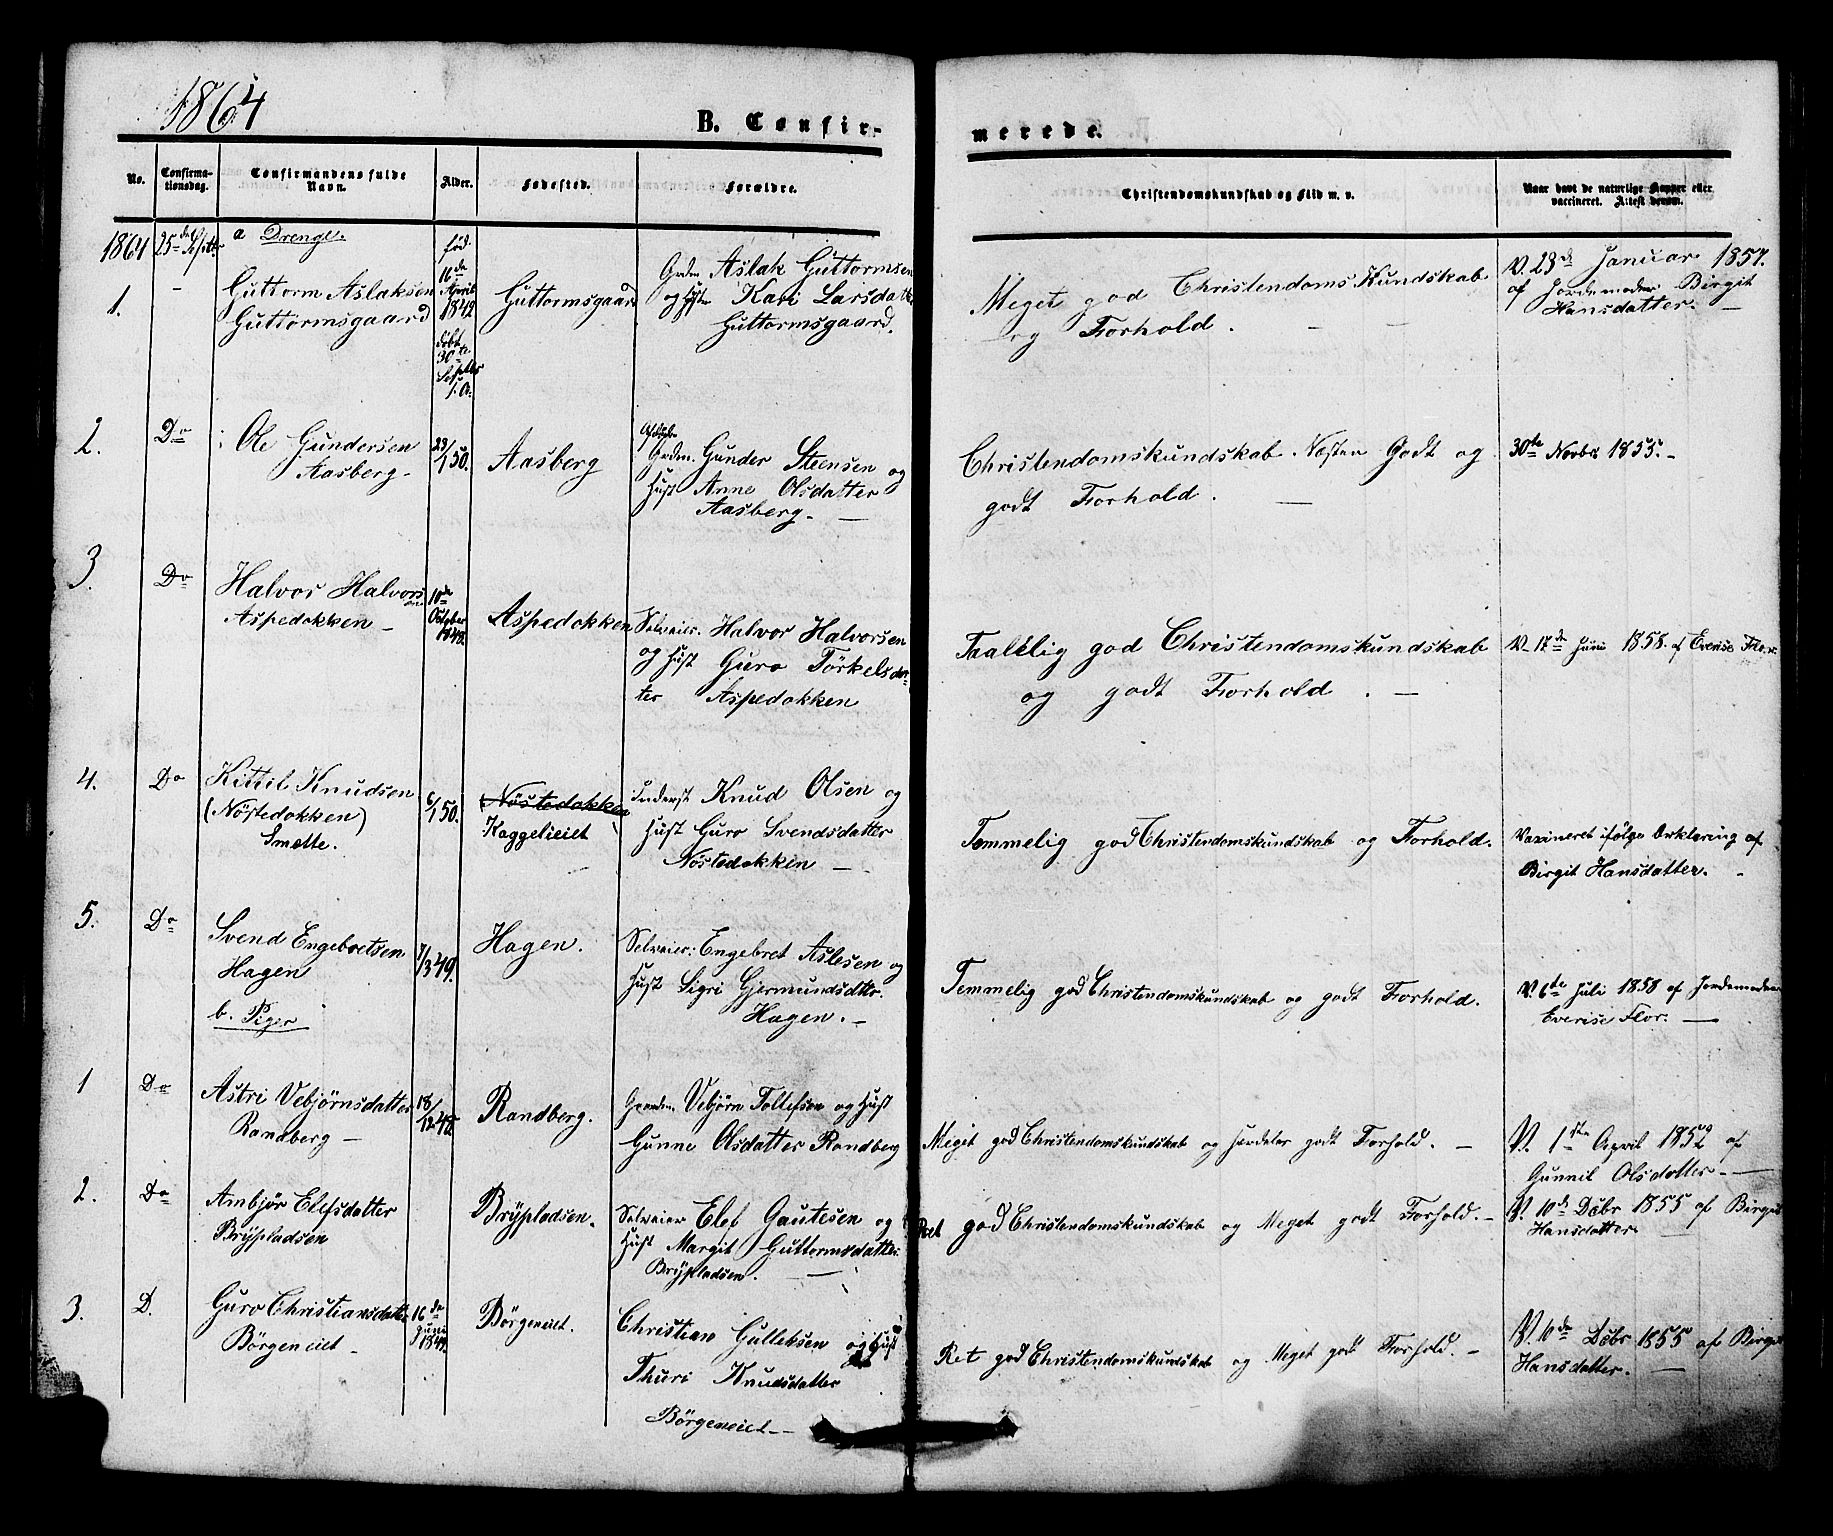 1864
B. Confir-
merede.
No.
Confirma-
tionsdag.
Confirmandens fulde
Navn.
Alder.
Fødested.
Forældre.
Christendomskundskab og Flid m. v.
Naar havt de naturlige Kopper eller
vaccineret. Attest derom.
1864 25de Septbr.
a Drenge.
1. - Guttorm Aslaksen
Guttormsgaard
fød.
16de
April
1849
døbt
30te
Septbr
s. A.
Guttormsgaard
Grdm. Aslak Guttormsen
og Hust Kari Larsdatter
Guttormsgaard.
Meget god Christendoms Kundskab
og Forhold. -
V. 23de Januar 1857.
af Jordemoder Birgit
Hansdatter. -
2. Do Ole Gundersen
Aasberg -
23/1 50.
Aasberg
Grdm. Gunder Steensen og
Hust Anne Olsdatter
Aasberg. -
Christendomskundskab Næsten Godt og
godt Forhold. -
30te Novbr 1855. -
3. Do Halvor Halvorsen
Aspedokken -
10de
October
1848.
Aspedokken
Selveier. Halvor Halvorsen
og Hust Guro Törkelsdat-
ter Aspedokken
Taalelig god Christendomskundskab
og godt Forhold. -
V. 17de Juni 1858. af Everise Flor.
4. Do Kittil Knudsen
(Nöstedokken)
Smette.
6/1 50.
Nöstedokken
Kaggelieiet
Inderst Knud Olsen og
Hust Guro Svendsdatter
Nöstedokken -
Temmelig god Christendomskundskab og Forhold.
Vaxineret ifölge Erklæring af
Birgit Hansdatter. -
5. Do Svend Engebretsen
Hagen
7/3 49.
Hagen.
Selveier: Engebret Aslesen og
Hust Sigri Gjermundsdtter.
Hagen. -
Temmelig god Christendomskundskab og godt Forhold.
V. 6te Juli 1858 af Jordemoder
Everise Flor. -
b. Piger
1 Do Astri Vebjörnsdatter
Randberg -
18/12 48.
Randberg.
Gaardm. Vebjörn Tollefsen og Hust
Gunne Olsdatter Randberg
Meget god Christendomskundskab og godt Forhold. -
V. 1ste April 1852 af
Gunnil Olsdatter. -
2. Do Ambjör Elefsdatter
Brÿpladsen
Brÿpladsen.
Selveier Elef Gautesen og
Hust Margit Guttormsdatter
Brÿpladsen. -
Ret god Christendomskundskab og Meget godt Forhold. -
V. 10de Dcbr 1855 af Birgit
Hansdatter -
3. D. Guro Christiansdatter
Börgeneiet -
16de
Juni
1849.
Börgeneiet.
Christian Gulleksen og Hust
Thuri Knudsdatter
Börgeneiet -
Ret god Christendomskundskab og Meget godt Forhold. -
V. 10de Dcbr 1855 af Birgit
Hansdatter. -